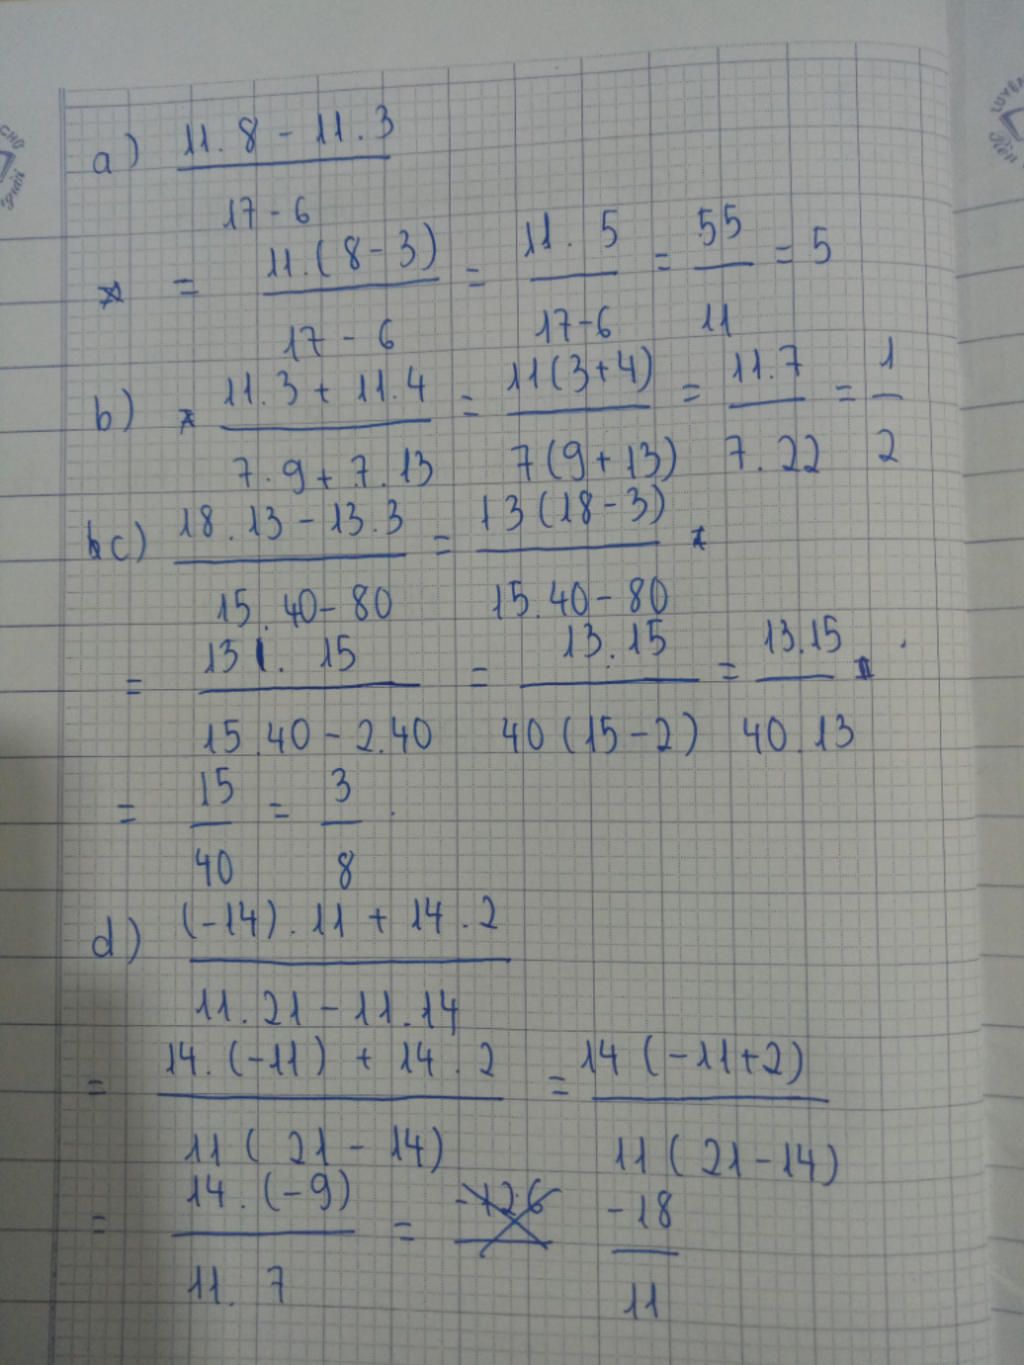 a) \frac{11.8 - 11.3}{17 - 6}
= \frac{11.(8-3)}{17 - 6} = \frac{11. 5}{17-6} = \frac{55}{11} = 5
b) \frac{11.3 + 11.4}{7.9 + 7.13} = \frac{11(3+4)}{7(9+13)} = \frac{11.7}{7.22} = \frac{1}{2}
c) \frac{18.13 - 13.3}{15.40 - 80} = \frac{13(18-3)}{15.40 - 80}
= \frac{13. 15}{15.40 - 2.40} = \frac{13.15}{40(15-2)} = \frac{13.15}{40.13}
= \frac{15}{40} = \frac{3}{8}.
d) \frac{(-14).11 + 14.2}{11.21 - 11.14}
= \frac{14.(-11) + 14.2}{11(21 - 14)} = \frac{14(-11+2)}{11(21-14)}
= \frac{14.(-9)}{11. 7} = \frac{-18}{11}
CHO
LUYỆN